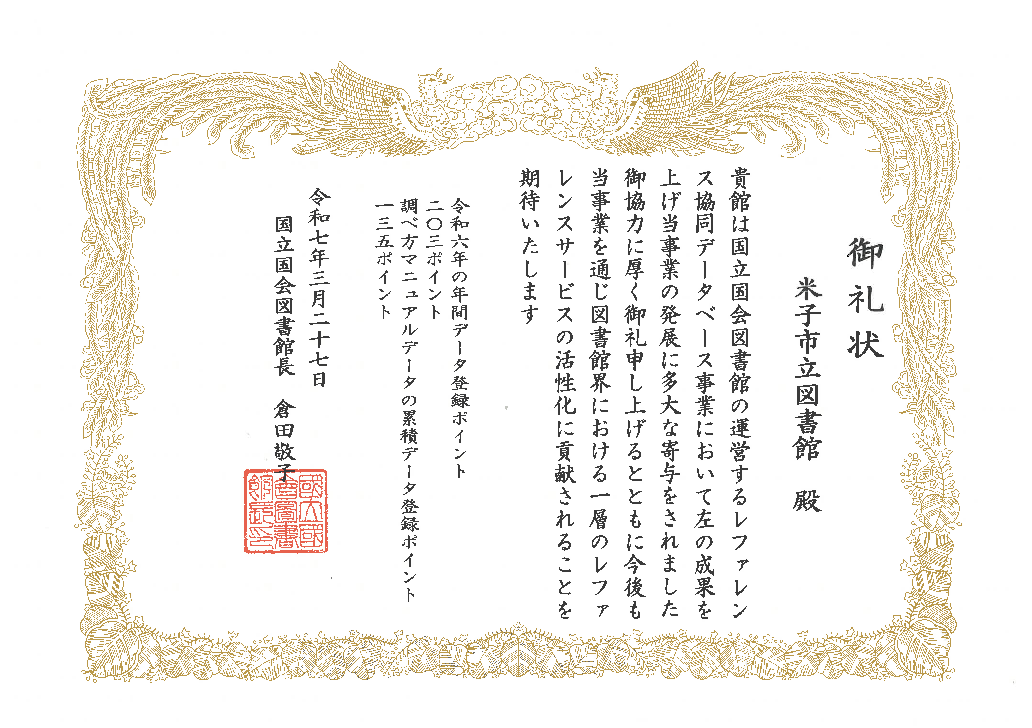 御礼状
米子市立図書館　殿
貴館は国立国会図書館の運営するレファレン
ス協同データベース事業において左の成果を
上げ当事業の発展に多大な寄与をされました
御協力に厚く御礼申し上げるとともに今後も
当事業を通じ図書館界における一層のレファ
レンスサービスの活性化に貢献されることを
期待いたします
令和六年の年間データ登録ポイント
二〇三ポイント
調べ方マニュアルデータの累積データ登録ポイント
一三五ポイント
令和七年三月二十七日
国立国会図書館長　倉田敬子